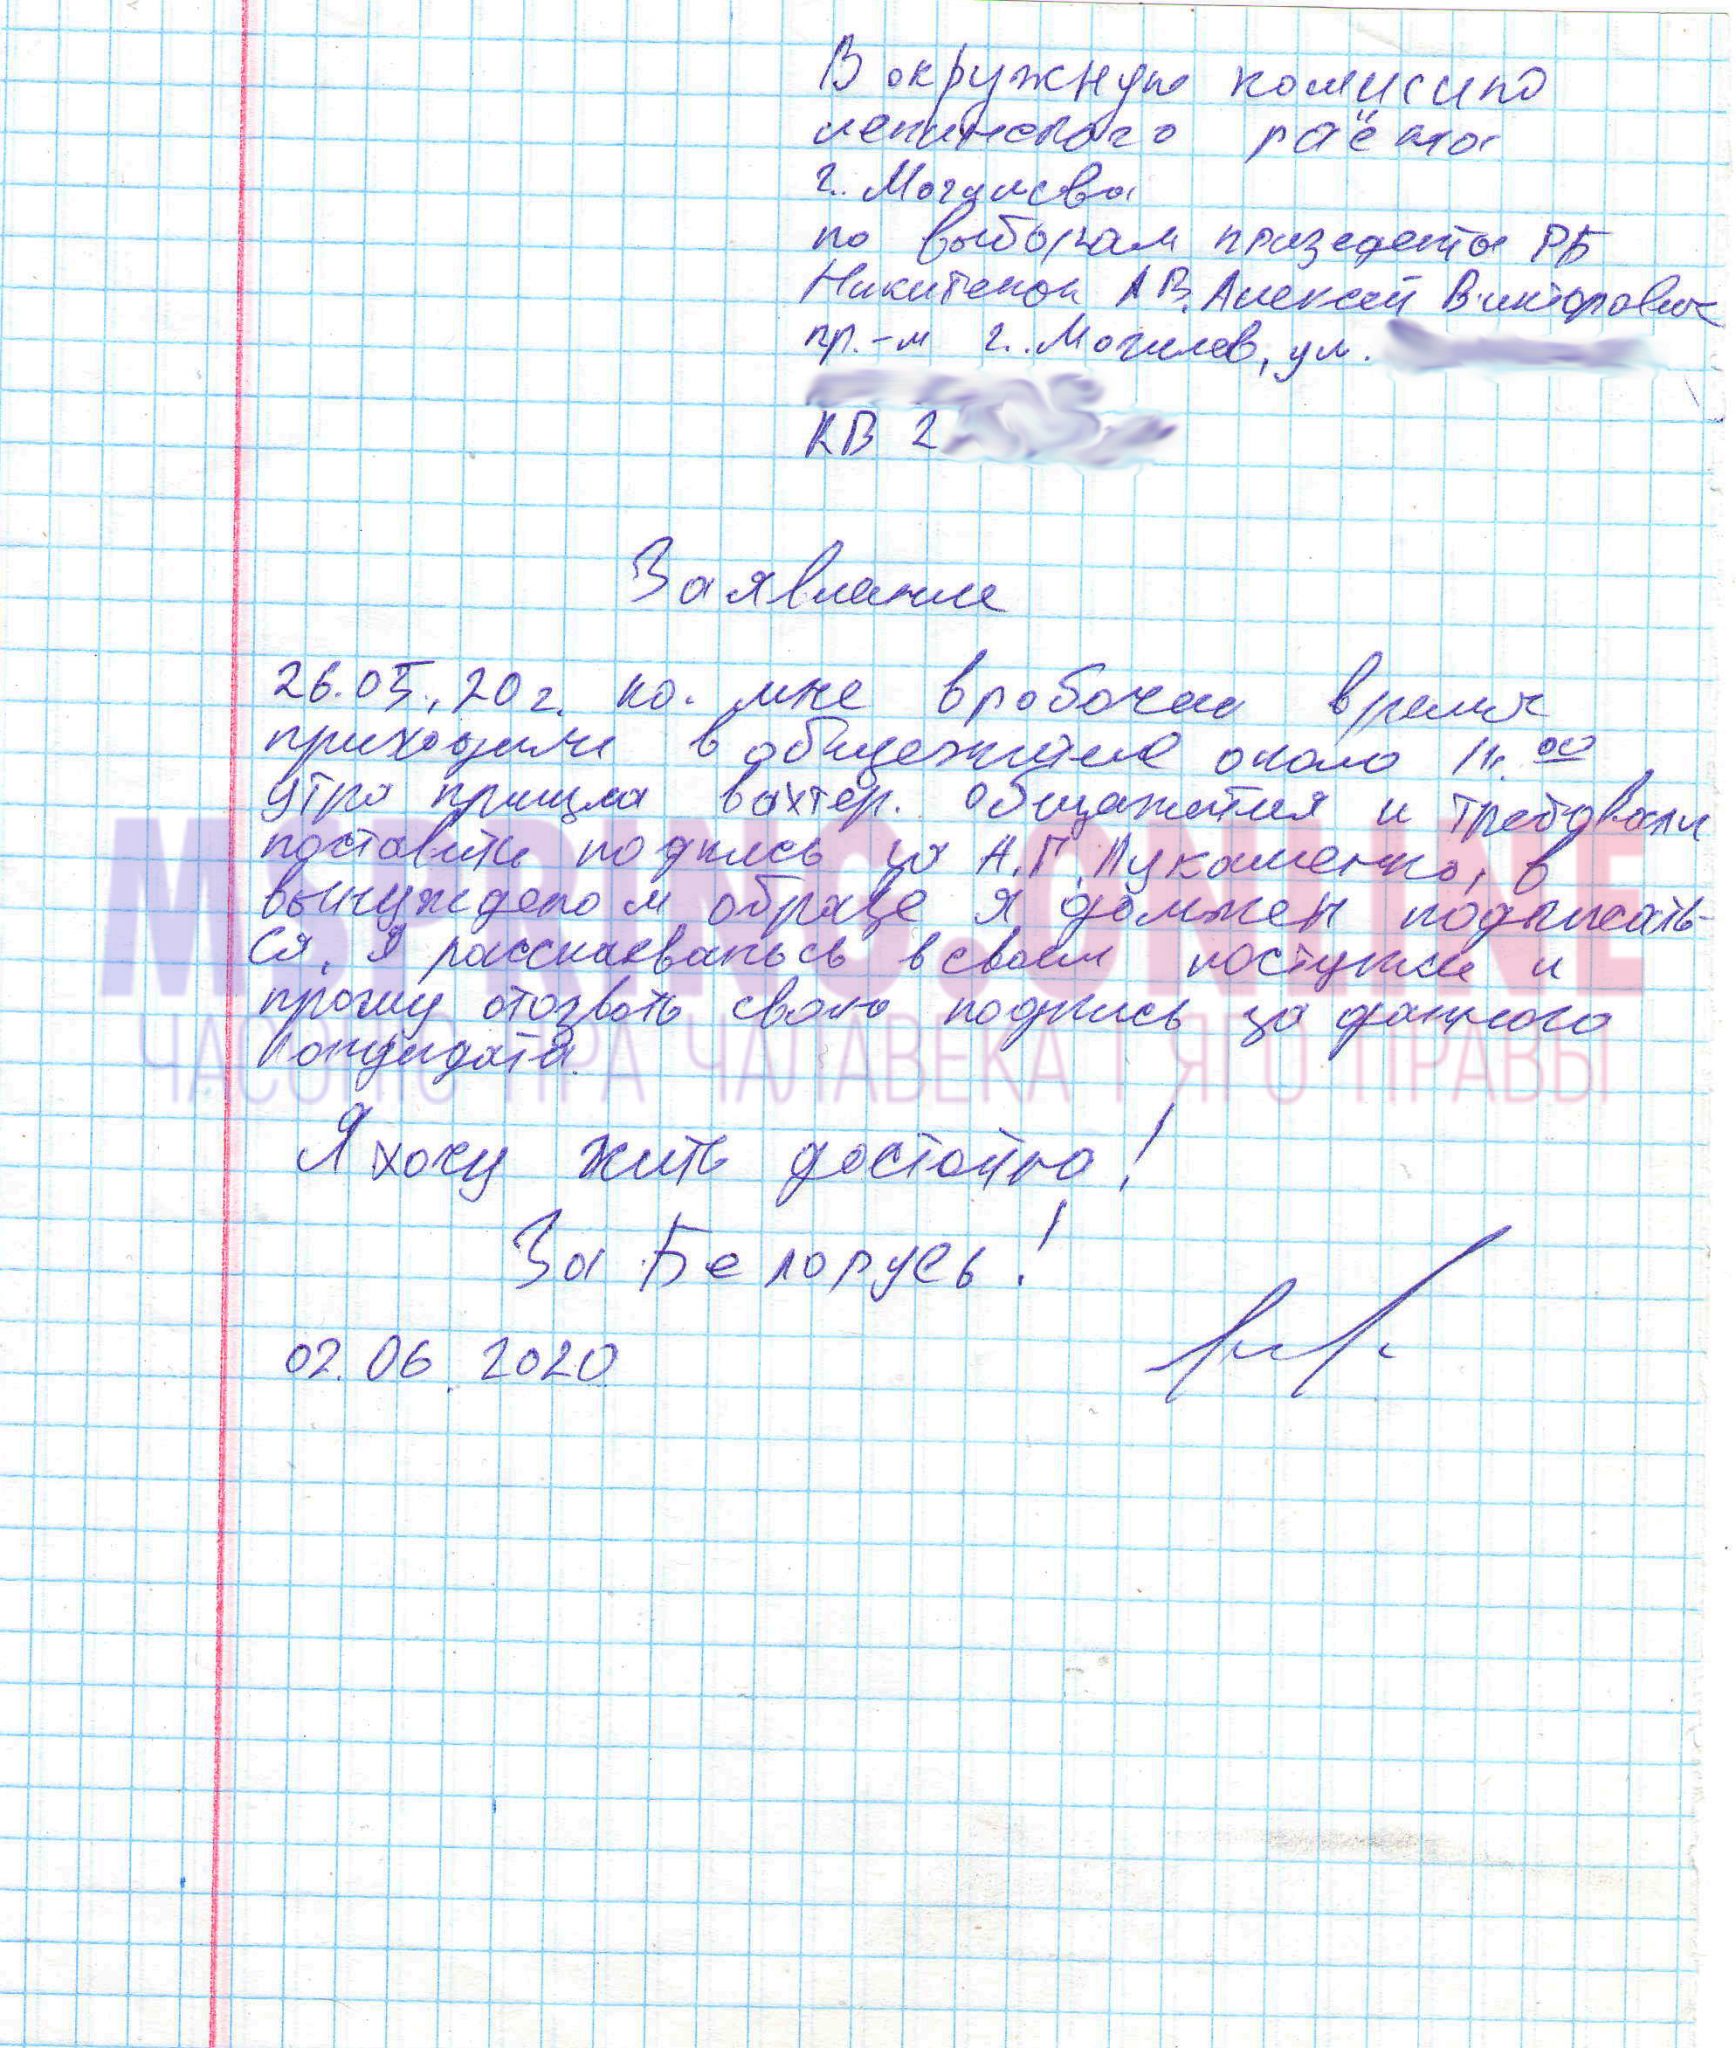 В окружную комисию
ленинского раёна
г. Могилёва
по выборам президента РБ
Никитенок А.В. Алексей Викторович
пр.-м г. Могилев, ул.
кв 2
Заявление
26.05.20 г. ко мне в рабочее время
приходили в общежитие около 11.00
утра пришла вахтер. Общажития и требовали
поставить подпись за А.Г. Лукашенко, в
вынужденом образе я должен подписать-
ся. Я расскаеваюсь в своем поступке и
прошу отозвать свою подпись за данного
кандидата.
Я хочу жить достойно!
За Белорусь!
02.06.2020
MSPRING.ONLINE
ЧАСОПІС ПРА ЧАЛАВЕКА І ЯГО ПРАВЫ